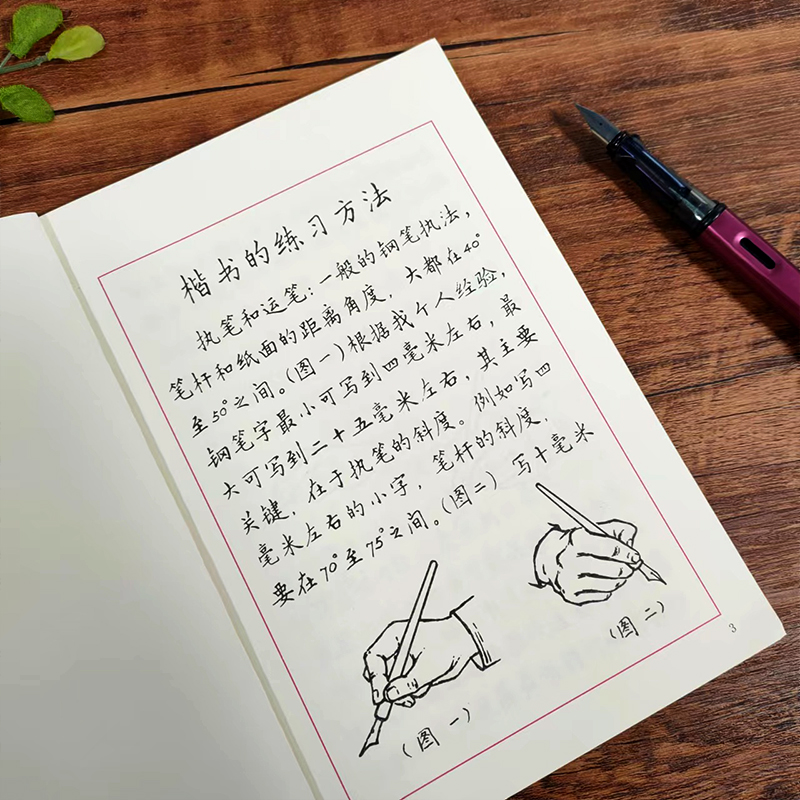 楷书的练习方法
执笔和运笔:一般的钢笔执法,
笔杆和纸面的距离角度,大都在40°
至50°之间。(图一)根据我个人经验,
钢笔字最小可写到四毫米左右,最
大可写到二十五毫米左右,其主要
关键,在于执笔的斜度。例如写四
毫米左右的小字,笔杆的斜度,
要在70°至75°之间。(图二)写十毫米
(图二)
(图一)
3